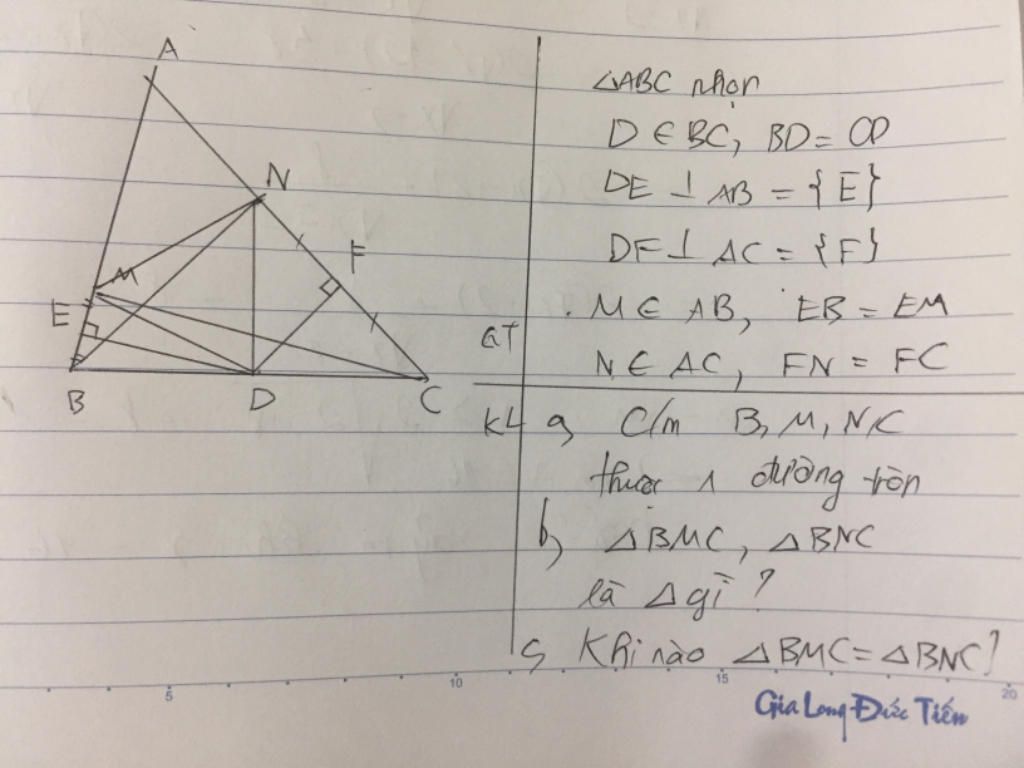 A
N
F
M
E
B
D
C
△ABC nhọn
D ∈ BC, BD = CD
DE ⊥ AB = {E}
DF ⊥ AC = {F}
. M ∈ AB, EB = EM
GT
N ∈ AC, FN = FC
KL a, C/m B, M, N, C
thuộc 1 đường tròn
b, △BMC, △BNC
là △ gì ?
c, Khi nào △BMC = △BNC ?
5 10 15 20
Gia Long Đức Tiến